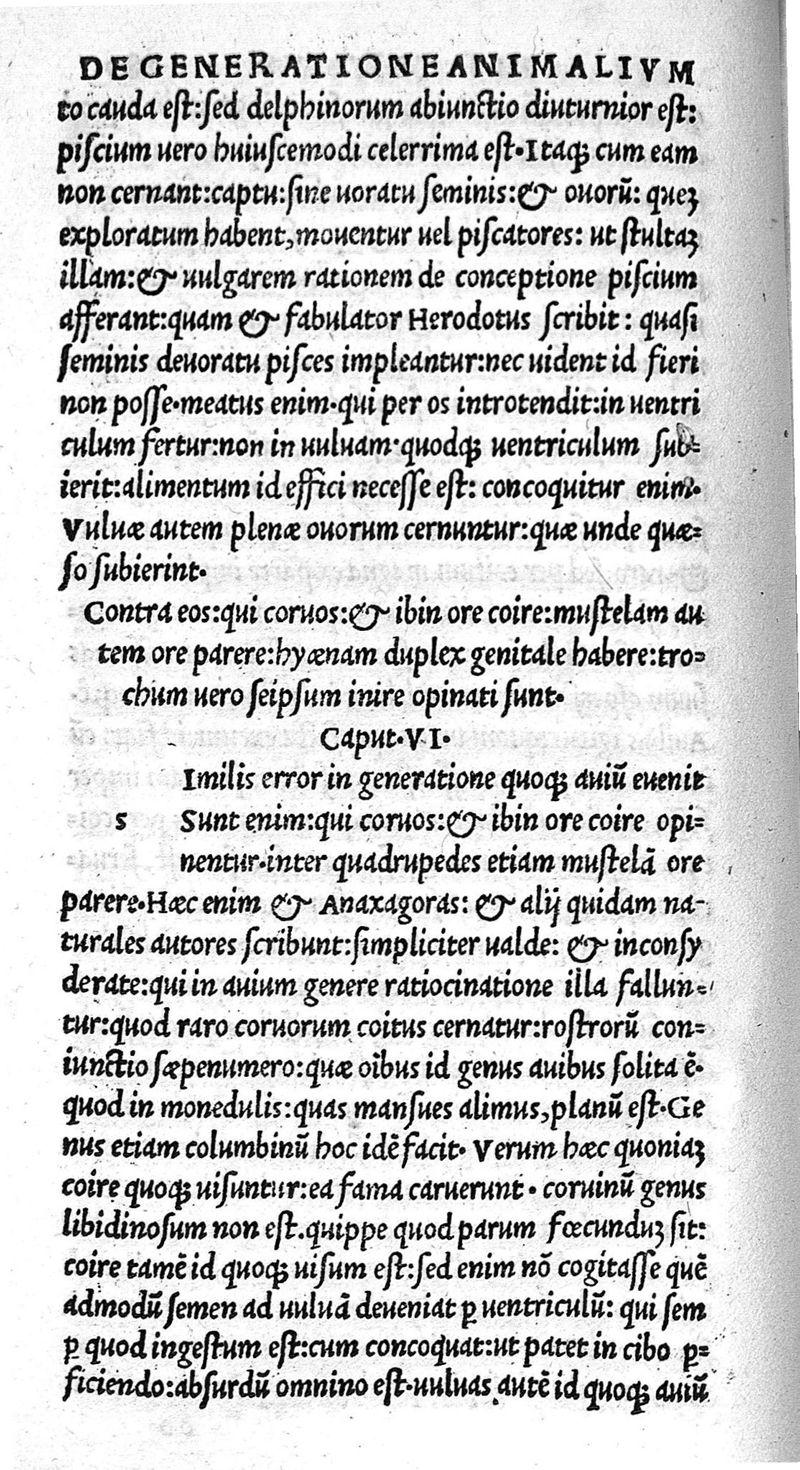 DE GENERATIONE ANIMALIVM
to cauda est:sed delphinorum abiunctio diuturnior est:
piscium uero huiuscemodi celerrima est·Itaqꝫ cum eam
non cernant:captu:sine uoratu seminis:& ouorũ: queꝫ
exploratum habent,mouentur uel piscatores: ut stultaꝫ
illam:& uulgarem rationem de conceptione piscium
afferant:quam & fabulator Herodotus scribit: quasi
seminis deuoratu pisces impleantur:nec uident id fieri
non posse·meatus enim·qui per os introtendit:in uentri
culum fertur:non in uuluam·quodqꝫ uentriculum sub=
ierit:alimentum id effici necesse est: concoquitur enim·
Vuluæ autem plenæ ouorum cernuntur:quæ unde quæ=
so subierint·
Contra eos:qui coruos:& ibin ore coire:mustelam au
tem ore parere:hyænam duplex genitale habere:tro=
chum uero seipsum inire opinati sunt·
Caput·VI·
Imilis error in generatione quoqꝫ auiũ euenit
s Sunt enim:qui coruos:& ibin ore coire opi=
nentur·inter quadrupedes etiam mustelã ore
parere·Hæc enim & Anaxagoras: & alij quidam na-
turales autores scribunt:simpliciter ualde: & inconsy
derate:qui in auium genere ratiocinatione illa fallun=
tur:quod raro coruorum coitus cernatur:rostrorũ con=
iunctio sæpenumero:quæ oĩbus id genus auibus solita ẽ·
quod in monedulis:quas mansues alimus,planũ est·Ge
nus etiam columbinũ hoc idẽ facit· Verum hæc quoniaꝫ
coire quoqꝫ uisuntur:ea fama caruerunt· coruinũ genus
libidinosum non est.quippe quod parum fœcunduꝫ sit:
coire tamẽ id quoqꝫ uisum est:sed enim nõ cogitasse quẽ
admodũ semen ad uuluã deueniat ꝑ uentriculũ: qui sem
ꝑ quod ingestum est:cum concoquat:ut patet in cibo ꝑ=
ficiendo:absurdũ omnino est·uuluas autẽ id quoqꝫ auiũ